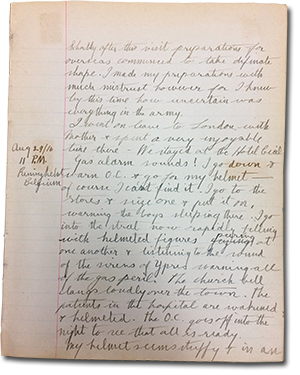 Shortly after this visit preparations for
overseas commenced to take definate
shape. I made my preparations with
much mistrust however for I knew
by this time how uncertain was
everything in the army.
I went on leave to London with
Mother & spent a very enjoyable
time there. We stayed at the Hotel Cecil.
Aug 29/16
11 P.M.
Reninghelst
Belgium
Gas alarm sounds! I go down &
warn O.C. & go for my helmet—
of course I cant find it. I go to the
stores & seize one & put it on,
warning the boys sleeping there. I go
into the street now rapidly filling
with helmeted figures peering at
one another & listening to the sound
of the sirens of Ypres warning all
of the gas peril. The church bell
clangs loudly over the town. The
patients in the hospital are wakened
& helmeted. The O.C. goes off into the
night to see that all is ready.
My helmet seems stuffy & in an